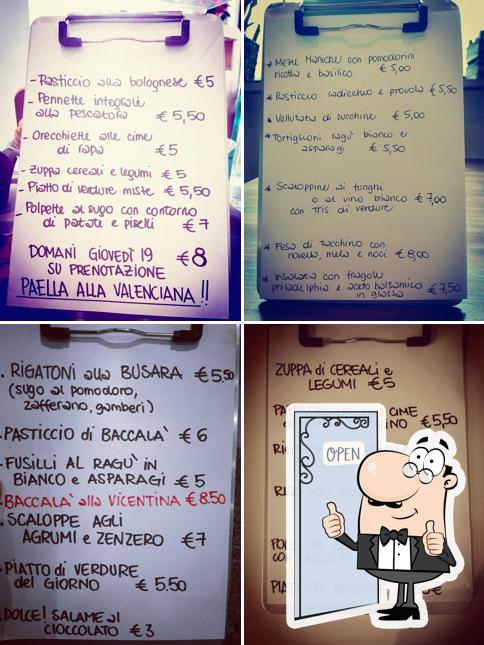 - Pasticcio alla bolognese €5
- Pennette integrali
alla pescatora € 5,50
- Orecchiette alle cime
di rapa €5
- Zuppa cereali e legumi € 5
- Piatto di verdure miste € 5,50
- Polpette al sugo con contorno
di patate e piselli € 7
DOMANI GIOVEDÌ 19 €8
SU PRENOTAZIONE
PAELLA ALLA VALENCIANA!!
* Mezze Maniche con pomodorini
ricotta e basilico € 5,00
* Pasticcio radicchio e provola € 5,50
* Vellutata di zucchine € 5,00
* Tortiglioni ragù bianco e
asparagi € 5,50
* Scaloppine ai funghi
o al vino bianco € 7,00
con tris di verdure
* Fesa di tacchino con
novella, mela e noci € 8,00
* Insalata con fragole
philadelphia e aceto balsamico € 7,50
in glassa
. RIGATONI alla BUSARA € 5,50
(sugo al pomodoro,
zafferano, gamberi)
. PASTICCIO di BACCALA' € 6
. FUSILLI AL RAGU' IN
BIANCO e ASPARAGI € 5
. BACCALA' alla VICENTINA € 8.50
. SCALOPPE AGLI
AGRUMI e ZENZERO €7
. PIATTO di VERDURE
del GIORNO € 5.50
. DOLCE! SALAME al
CIOCCOLATO € 3
ZUPPA di CEREALI e
LEGUMI €5
CIME
€5,50
OPEN